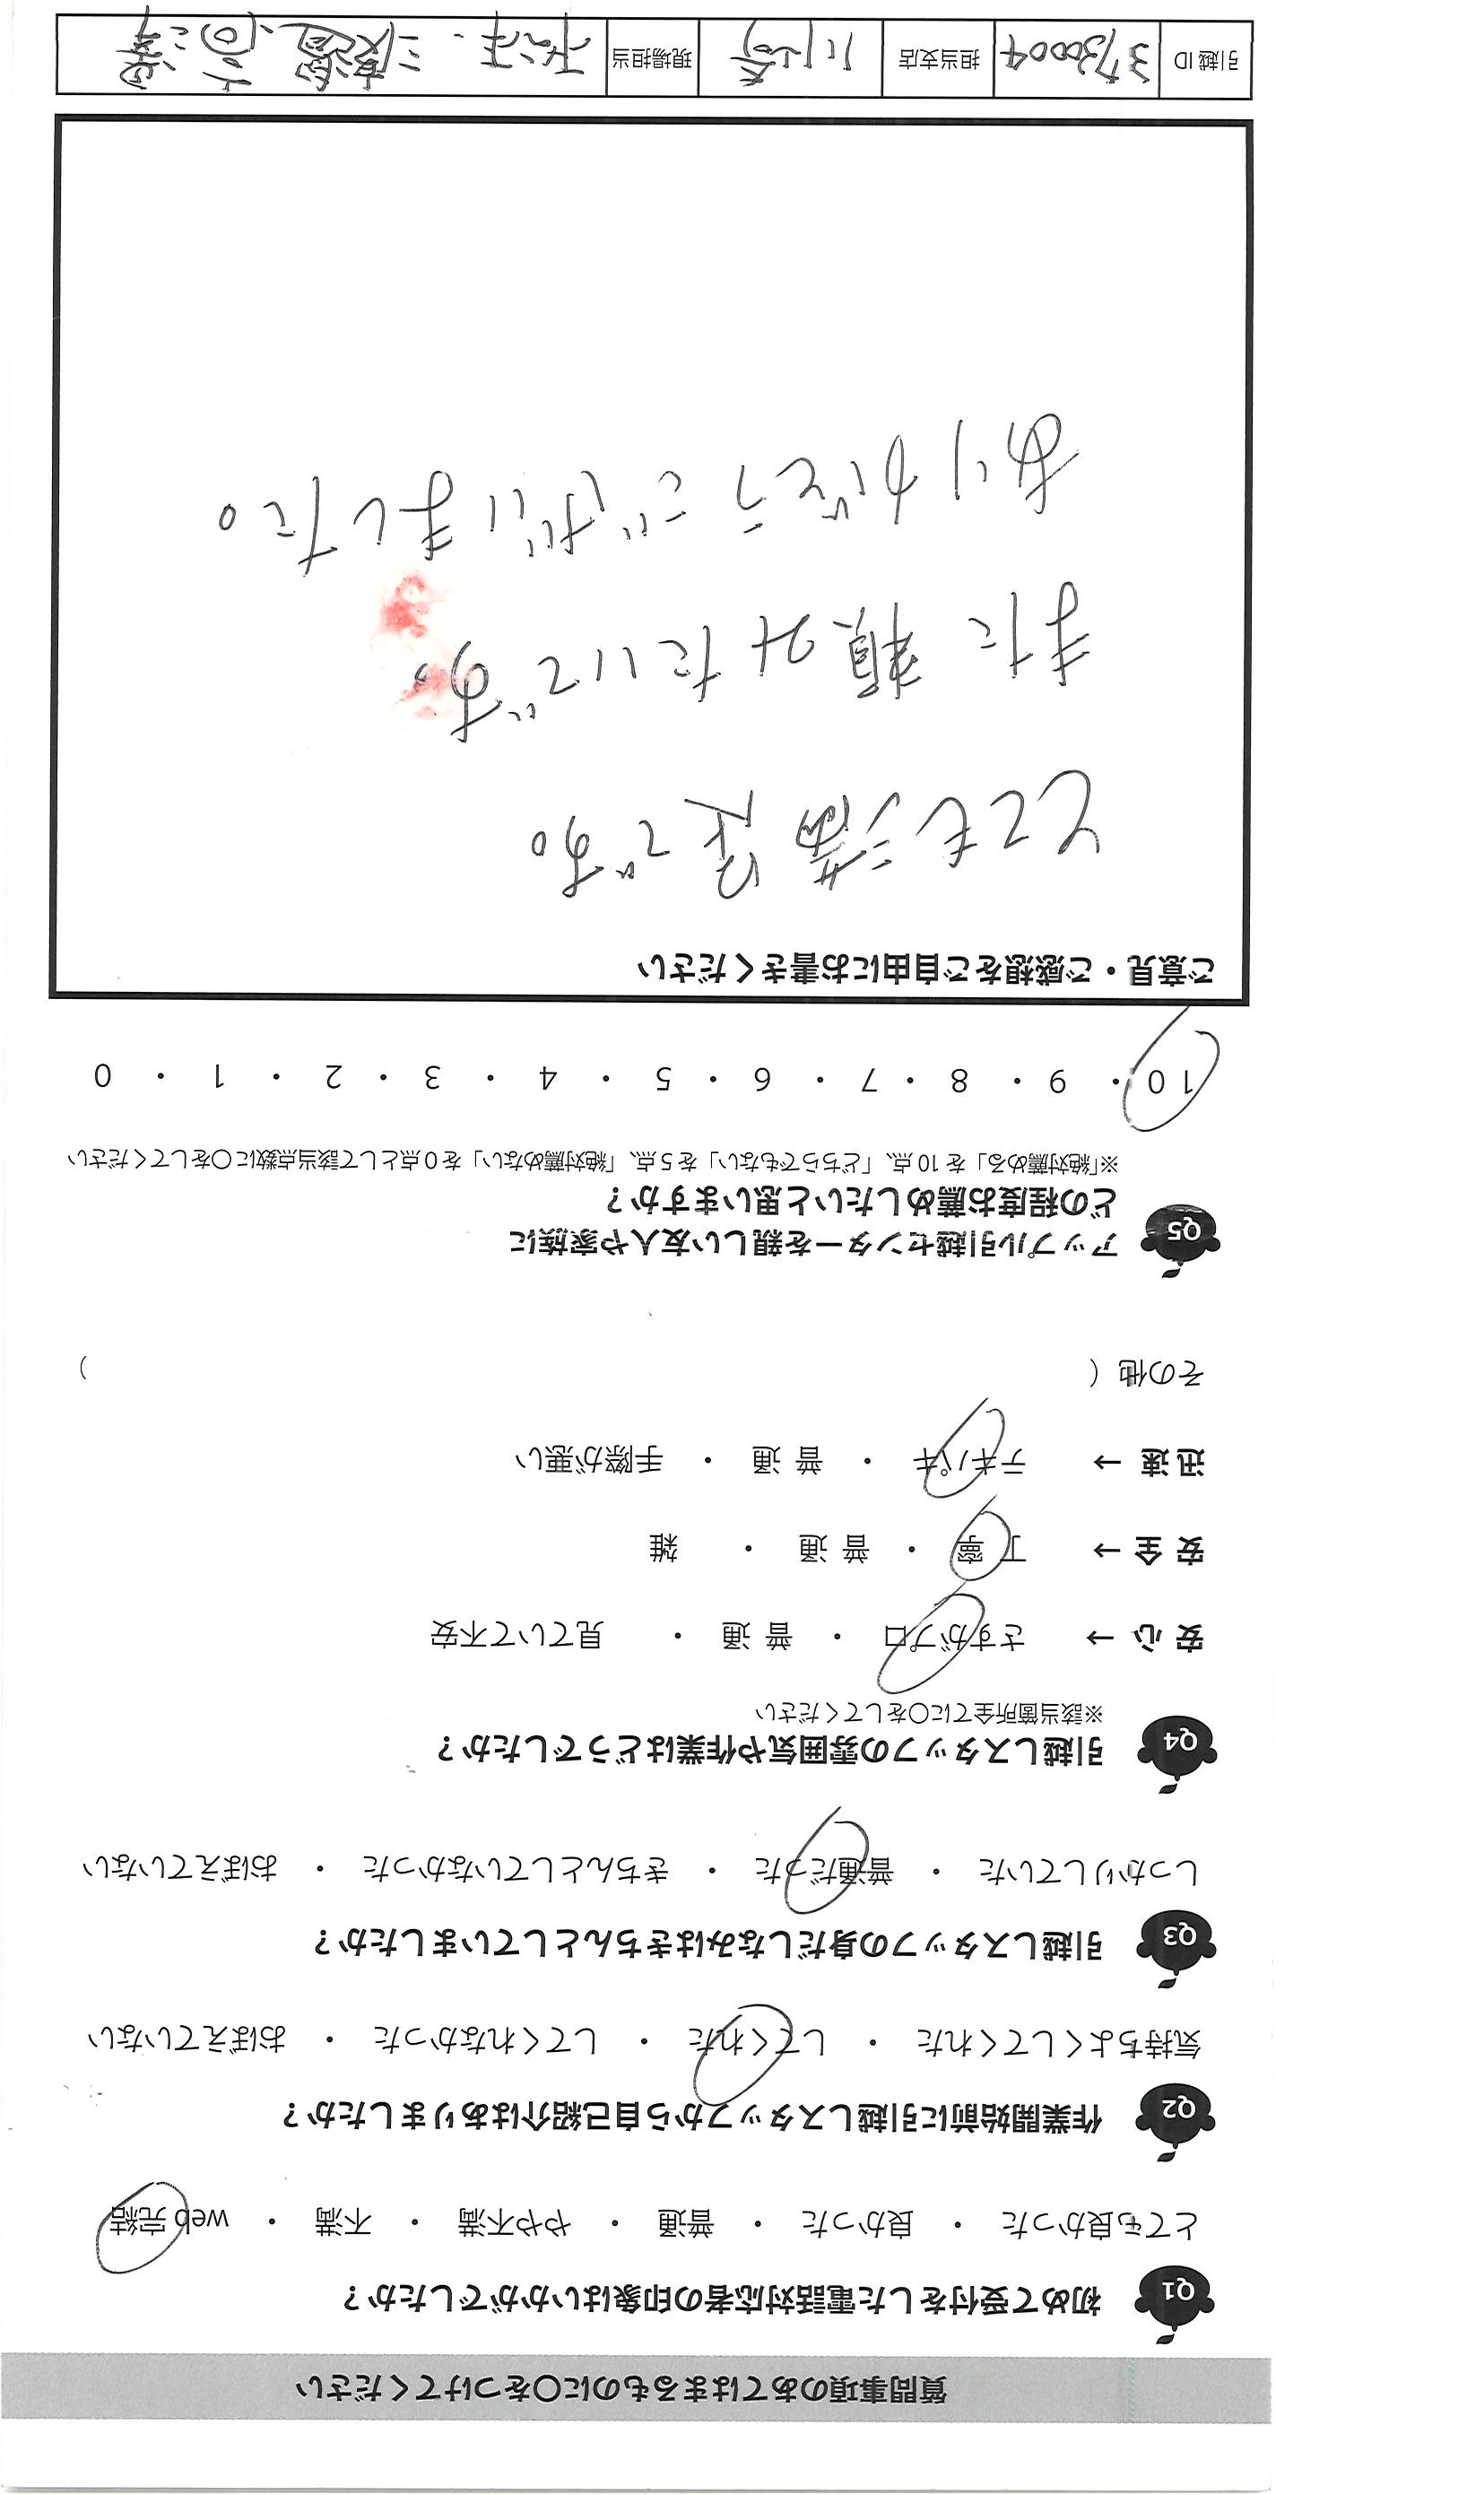 質問事項のあてはまるものに○をつけてください
Q1 初めて受付をした電話対応者の印象はいかがでしたか？
とても良かった ・ 良かった ・ 普通 ・ やや不満 ・ 不満 ・ web完結
Q2 作業開始前に引越しスタッフから自己紹介はありましたか？
気持ちよくしてくれた ・ してくれた ・ してくれなかった ・ おぼえていない
Q3 引越しスタッフの身だしなみはきちんとしていましたか？
しっかりしていた ・ 普通だった ・ きちんとしていなかった ・ おぼえていない
Q4 引越しスタッフの雰囲気や作業はどうでしたか？
※該当箇所全てに○をしてください
安心 → さすがプロ ・ 普通 ・ 見ていて不安
安全 → 丁寧 ・ 普通 ・ 雑
迅速 → テキパキ ・ 普通 ・ 手際が悪い
その他（ ）
Q5 アップル引越センターを親しい友人や家族に
どの程度お薦めしたいと思いますか？
※「絶対薦める」を10点、「どちらでもない」を5点、「絶対薦めない」を0点として該当点数に○をしてください
10 ・ 9 ・ 8 ・ 7 ・ 6 ・ 5 ・ 4 ・ 3 ・ 2 ・ 1 ・ 0
ご意見・ご感想をご自由にお書きください
とても満足です。
また頼みたいです。
ありがとうございました。
引越ID 3730004 担当支店 川崎 現場担当